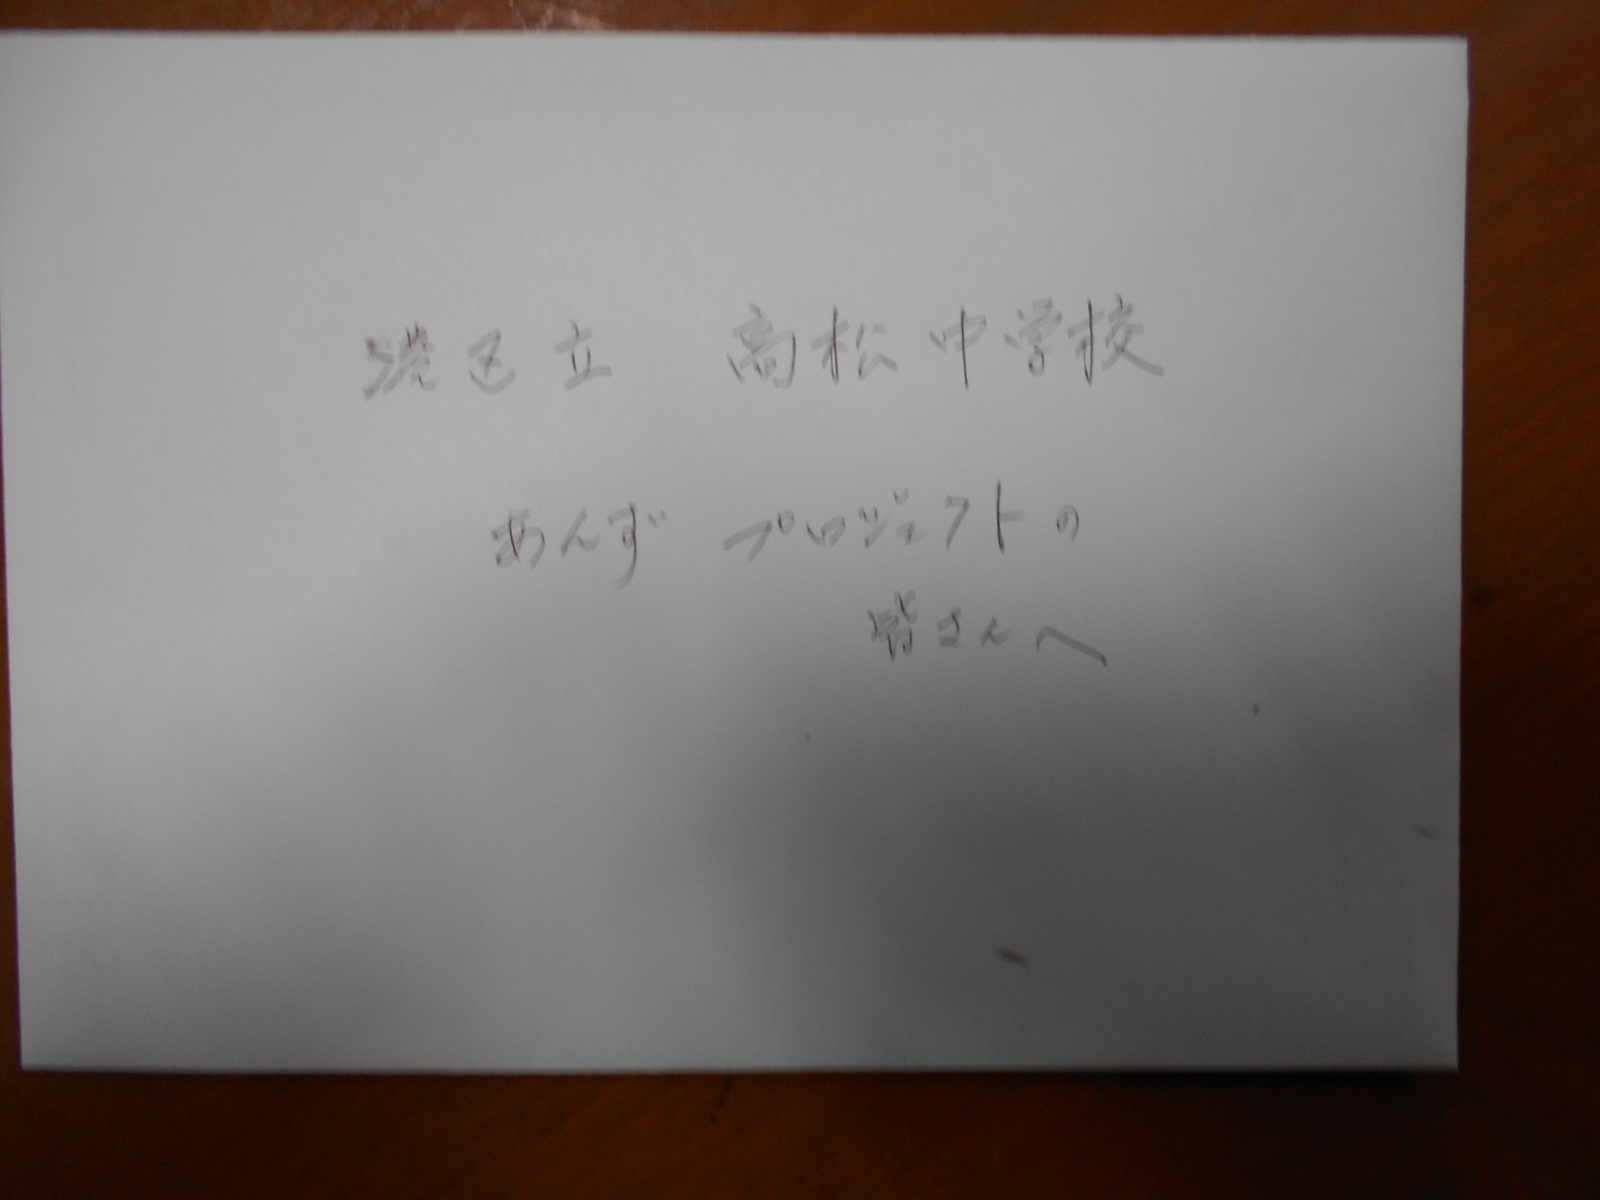 港区立 高松中学校
あんず プロジェクトの
皆さんへ